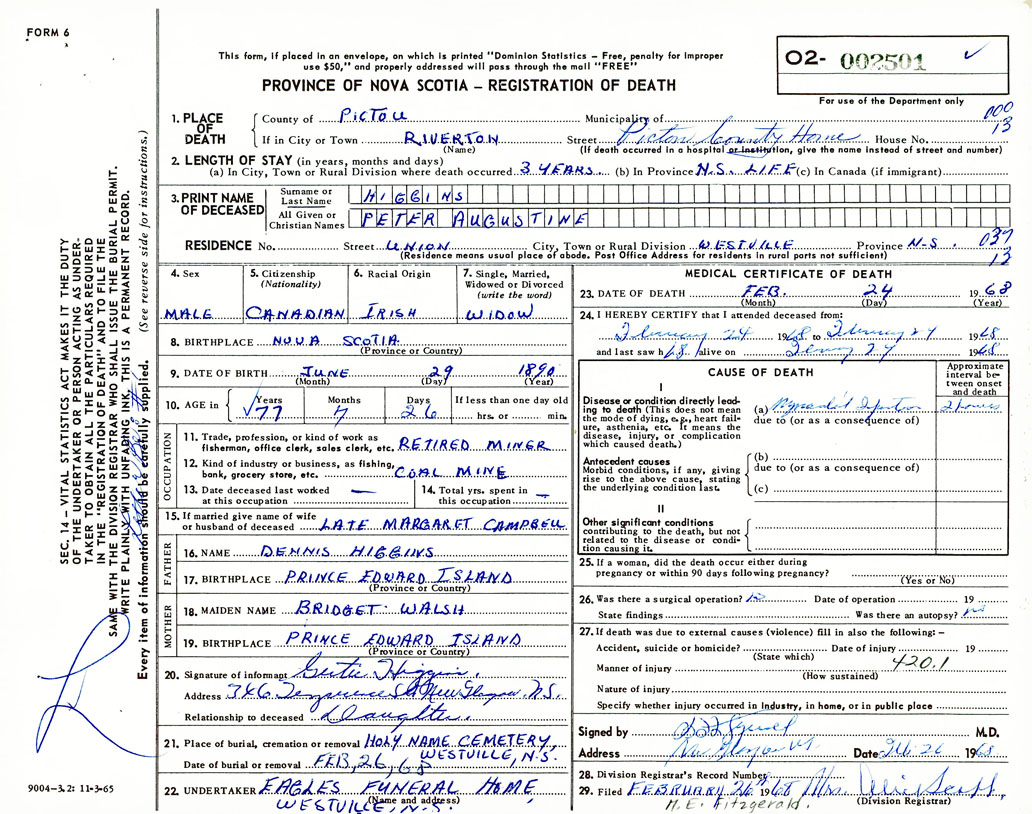 FORM 6
This form, if placed in an envelope, on which is printed "Dominion Statistics – Free, penalty for improper
use $50," and properly addressed will pass through the mail "FREE"
PROVINCE OF NOVA SCOTIA – REGISTRATION OF DEATH
O2- 002501 ✓
For use of the Department only
000
13
1. PLACE OF DEATH
County of PICTOU Municipality of
If in City or Town RIVERTON Street Pictou County Home House No.
(Name) (If death occurred in a hospital or institution, give the name instead of street and number)
2. LENGTH OF STAY (in years, months and days)
(a) In City, Town or Rural Division where death occurred 3 YEARS. (b) In Province N.S. LIFE (c) In Canada (if immigrant)
3. PRINT NAME OF DECEASED
Surname or Last Name HIGGINS
All Given or Christian Names PETER AUGUSTINE
RESIDENCE No. Street UNION City, Town or Rural Division WESTVILLE Province N-S. 037
(Residence means usual place of abode. Post Office Address for residents in rural parts not sufficient) 13
4. Sex
MALE
5. Citizenship
(Nationality)
CANADIAN
6. Racial Origin
IRISH
7. Single, Married,
Widowed or Divorced
(write the word)
WIDOW
8. BIRTHPLACE NOVA SCOTIA
(Province or Country)
9. DATE OF BIRTH JUNE 29 1890
(Month) (Day) (Year)
10. AGE in
Years Months Days If less than one day old
√77 7 26 hrs. or min.
OCCUPATION
11. Trade, profession, or kind of work as
fisherman, office clerk, sales clerk, etc. RETIRED MINER
12. Kind of industry or business, as fishing,
bank, grocery store, etc. COAL MINE
13. Date deceased last worked
at this occupation —
14. Total yrs. spent in
this occupation —
15. If married give name of wife
or husband of deceased LATE MARGARET CAMPBELL
FATHER
16. NAME DENNIS HIGGINS
17. BIRTHPLACE PRINCE EDWARD ISLAND
(Province or Country)
MOTHER
18. MAIDEN NAME BRIDGET WALSH
19. BIRTHPLACE PRINCE EDWARD ISLAND
(Province or Country)
20. Signature of informant Higgins.
Address 346 New Glasgow, N.S.
Relationship to deceased Daughter.
21. Place of burial, cremation or removal HOLY NAME CEMETERY,
WESTVILLE, N.S.
Date of burial or removal FEB, 26, 68
22. UNDERTAKER EAGLES FUNERAL HOME,
(Name and address)
WESTVILLE, N.S.
MEDICAL CERTIFICATE OF DEATH
23. DATE OF DEATH FEB. 24 1968
(Month) (Day) (Year)
24. I HEREBY CERTIFY that I attended deceased from:
February 24 1968 to February 24 1968
and last saw h alive on 24 1968
CAUSE OF DEATH
Approximate
interval be-
tween onset
and death
I
Disease or condition directly lead-
ing to death (This does not mean
the mode of dying, e.g., heart fail-
ure, asthenia, etc. It means the
disease, injury, or complication
which caused death.)
(a) 2 hours
due to (or as a consequence of)
Antecedent causes
Morbid conditions, if any, giving
rise to the above cause, stating
the underlying condition last.
(b)
due to (or as a consequence of)
(c)
II
Other significant conditions
contributing to the death, but not
related to the disease or condi-
tion causing it.
25. If a woman, did the death occur either during
pregnancy or within 90 days following pregnancy?
(Yes or No)
26. Was there a surgical operation? Date of operation 19
State findings Was there an autopsy?
27. If death was due to external causes (violence) fill in also the following: –
Accident, suicide or homicide? Date of injury 19
(State which)
Manner of injury 420.1
(How sustained)
Nature of injury
Specify whether injury occurred in Industry, in home, or in public place
Signed by M.D.
Address New Glasgow Date Feb. 26 1968
28. Division Registrar's Record Number
29. Filed FEBRUARY 26 1968 Mrs. Scott
(Division Registrar)
M. E. Fitzgerald.
SEC. 14 – VITAL STATISTICS ACT MAKES IT THE DUTY
OF THE UNDERTAKER OR PERSON ACTING AS UNDER-
TAKER TO OBTAIN ALL THE PARTICULARS REQUIRED
IN THE "REGISTRATION OF DEATH" AND TO FILE THE
SAME WITH THE DIVISION REGISTRAR WHO SHALL ISSUE THE BURIAL PERMIT.
WRITE PLAINLY WITH UNFADING INK, THIS IS A PERMANENT RECORD.
Every item of information should be carefully supplied. (See reverse side for instructions.)
9004–3.2: 11-3-65